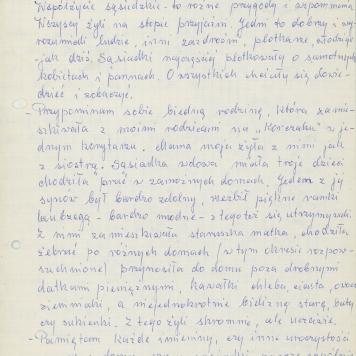 Współżycie sąsiedzkie - to różne przygody i wspomnienia
Wszyscy żyli na stopie przyjaźni. Jedni to dobrzy i wy-
rozumiali ludzie, inni zazdrośni, plotkarze, złodzieje
- jak dziś. Sąsiadki najczęściej plotkowały o samotnych
kobietach i pannach. O wszystkich chciały się dowie-
dzieć i zobaczyć.
- Przypominam sobie biedną rodzinę, która zamie-
szkiwała z moimi rodzicami na w je-
dnym korytarzu. Mama moja żyła z nimi jak
z siostrą. Sąsiadka wdowa miała troje dzieci
chodziła "prać" w zamożnych domach. Jeden z jej
synów był bardzo zdolny, rzeźbił piękne ramki
- bardzo modne - z tego też się utrzymywali.
Z nimi zamieszkiwała staruszka matka, chodziła
żebrać po różnych domach (w tym okresie rozpow-
szechnione) przynosiła do domu poza drobnymi
datkami pieniężnymi, kawałki chleba, ciasta, owoce
ziemniaki, a niejednokrotnie bieliznę starą, buty
czy sukienki. Z tego żyli skromnie, ale uczciwie.
- Pamiętam każde imieniny, czy inne uroczystości